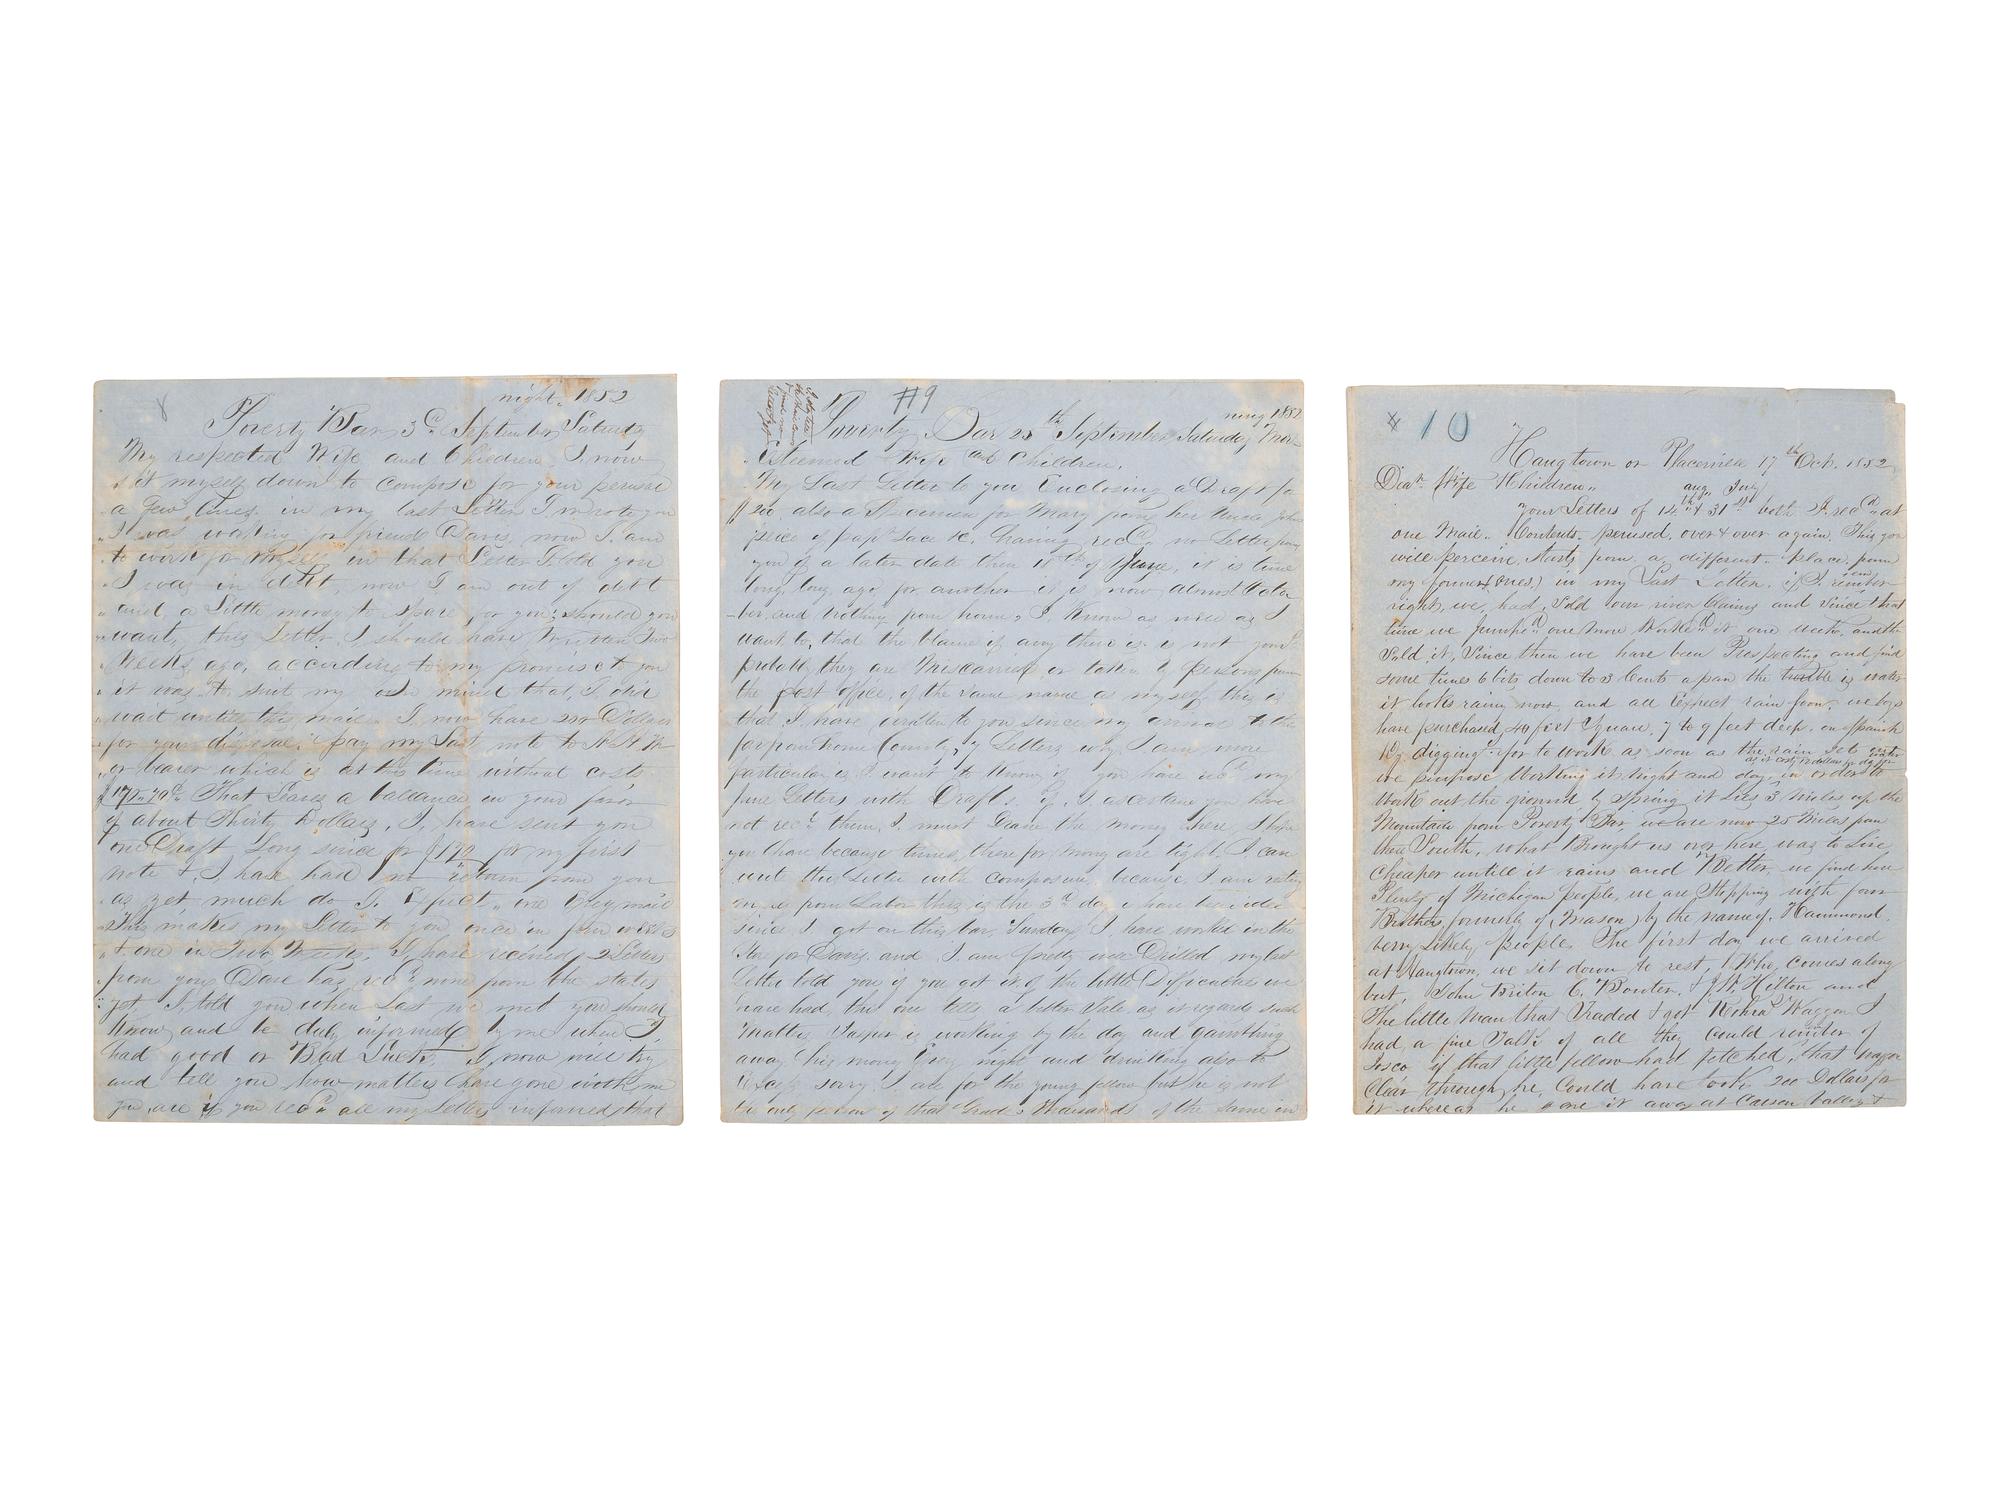 night. 1852
Poverty Bar 3d September Saturday
My respected Wife and Children I now
sit myself down to compose for your peruse
a Few Lines. in my last Letter I wrote you
I was working for friend Davis, now I am
to work for myself in that Letter I told you
I was in debt, now I am out of debt
and a Little money to spare for you, should you
want, this Letter I should have written Two
Weeks, ago, according to my promise to you
it was to suit my own mind that, I did
wait until this mail. I now have 200 Dollars
for your disposal, pay my Last note to
or bearer which is at this time without costs
That Leaves a ballance in your favor
of about Thirty Dollars, I, have sent you
one Draft Long since for $170 for my first
note & I have had no return from you
as yet much do I Expect, one Every mail
This makes my Letter to you once in four weeks
& one in Two Weeks, I have received 2 Letters
from you, Dave has recd none from the states
yet, I told you when Last we met you should
Know and be duly informed by me when I
had good or Bad Luck. I, now will try
and tell you how matters have gone with me
you are if you recd all my Letters informed that
#9
ning 1852
Poverty Bar 25th September Saturday Mor-
Esteemed Wife and Children.
My Last Letter to you Enclosing a Draft for
$ 200 also a Specimen for Mary from her Uncle John
price of having recd no Letter from
you of a later date then 18th of June, it is time
long, long ago, for another it is now almost Octo
-ber, and nothing from home, I Know as well as I
want to, that the blame if any there is is not yours
probably they are Miscarried or taken by persons from
the post office, of the same name as myself, this is
that I have written to you since my arrival to the
far from home County, 7 Letters why I am more
particular is I want to Know if you have recd my
June Letters with Drafts. if I ascertain you have
not recd them, I must Leave the money here, I hope
you have because times, there for Mony are tight. I can
write this Letter with composure, because, I am resting
from Labor this is the 3d day I have
since I got on this bar, Sundays I have worked in the
Store for Davis, and I am pretty well Drilled my last
Letter told you if you got it of the little Difficulties we
have had, this one tells a better Tale as it regards such
matters is working by the day and gambling
away his mony Every night and drinking also to
Excess sorry I am for the young fellow but he is not
the only person of that Grade, thousands of the same in
10
Haugtown or Placerville 17th Oct. 1852
Dear Wife & Children,
aug July
your Letters of 14th & 31st both I recd at
one Mail. Contents perused, over & over again. This you
will perceive, starts from a different place, from
my former (ones) in my Last Letter, if I remember
right, we, had, Sold our river Claims and Since that
time we Jumped one more Worked it one week, and the
Sold it, Since then we have been Prospecting and find
some times 6 bits down to 3 Cents a pan the trouble is water
it looks rainy now, and all Expect rain soon, we boys
have purchased 40 feet Square, 7 to 9 feet deep, on Spanish
digging for to Work as soon as the rain sets
we purpose Working it Night and day, in order to
Work out the ground by Spring it Lies 3 Miles up the
Mountain from Poverty Bar, we are now 25 Miles from
there South, what Brought us over here was to Live
Cheaper untill it rains and Better, we find here
Plenty of Michegan people, we are Stopping with four
Brothers, formerly of (Mason) by the name of Hammond,
very Likely people. The first day we arrived
at Haugtown, we sit down to rest, Who, comes along
but, John Briton C. Hilton and
The Little Man that Traded & got Waggon I
had, a fine Talk of all they could remiber of
Iosco if that little fellow had fetched, that wagon
Clear through, he, Could have took 200 Dollars for
it whereas he gave it away at Carson Valley &